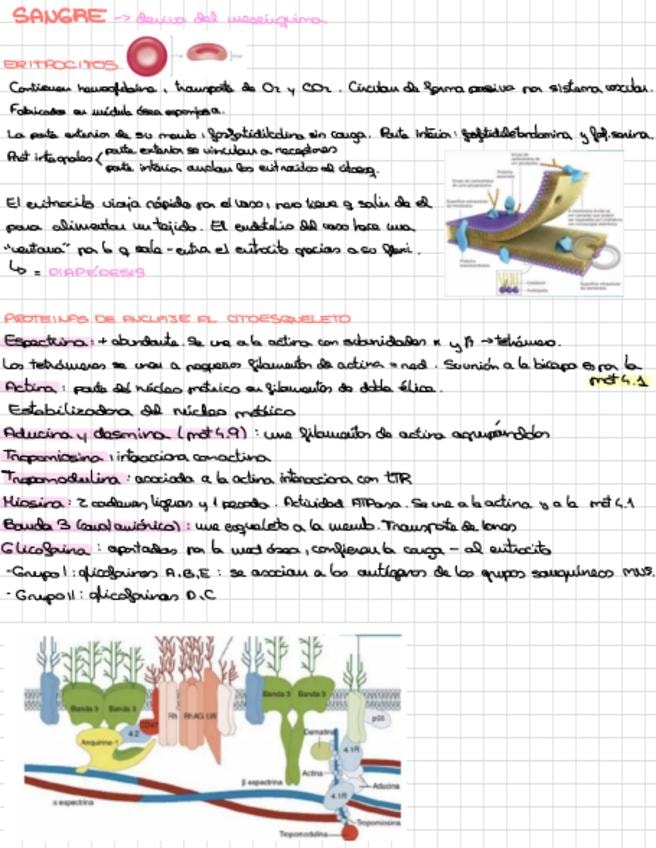 SANGRE -> deriva del mesénquima
ERITROCITOS
Contienen hemoglobina, transporte de O2 y CO2. Circulan de forma pasiva por sistema vascular.
Fabricados en médula ósea esponjosa.
La parte exterior de su memb: fosfatidilcolina sin carga. Parte interior: y fosf. serina.
Prot integrales < parte exterior se vinculan a receptores
parte interior anclan los eritrocitos al citoesq.
El eritrocito viaja rápido por el vaso, pero tiene q salir de él
para alimentar un tejido. El endotelio del vaso hace una
"ventana" por la q sale-entra el eritrocito gracias a su flexi.
↳ = DIAPÉDESIS
PROTEINAS DE ANCLAJE AL CITOESQUELETO
Espectrina: + abundante. Se une a la actina con subunidades α y β → tetrámero.
Los tetrámeros se unen a pequeños filamentos de actina = red. Su unión a la bicapa es por la
prot 4.1
Actina: parte del núcleo métrico en filamentos de doble élice.
Estabilizadora del núcleo
Aducina y desmina (prot 4.9): une filamentos de actina agrupándolos
Tropomiosina: interacciona con actina
Tropomodulina: asociada a la actina interacciona con
Miosina: 2 cadenas ligeras y 1 pesada. Actividad ATPasa. Se une a la actina y a la prot 4.1
Banda 3 (canal aniónico): une esqueleto a la memb. Transporte de iones
Glicoforina: aportadas por la med ósea, confieren la carga - al eritrocito
-Grupo I: glicoforinas A,B,E: se asocian a los antígenos de los grupos sanguíneos
-Grupo II: glicoforinas D,C
Banda 3
Banda 3
4.2
CD47
Rh
RhAG
LW
Banda 3
Banda 3
p55
Anquirina-1
Dematina
4.1R
Actina
Aducina
β espectrina
4.1R
α espectrina
Tropomiosina
Tropomodulina